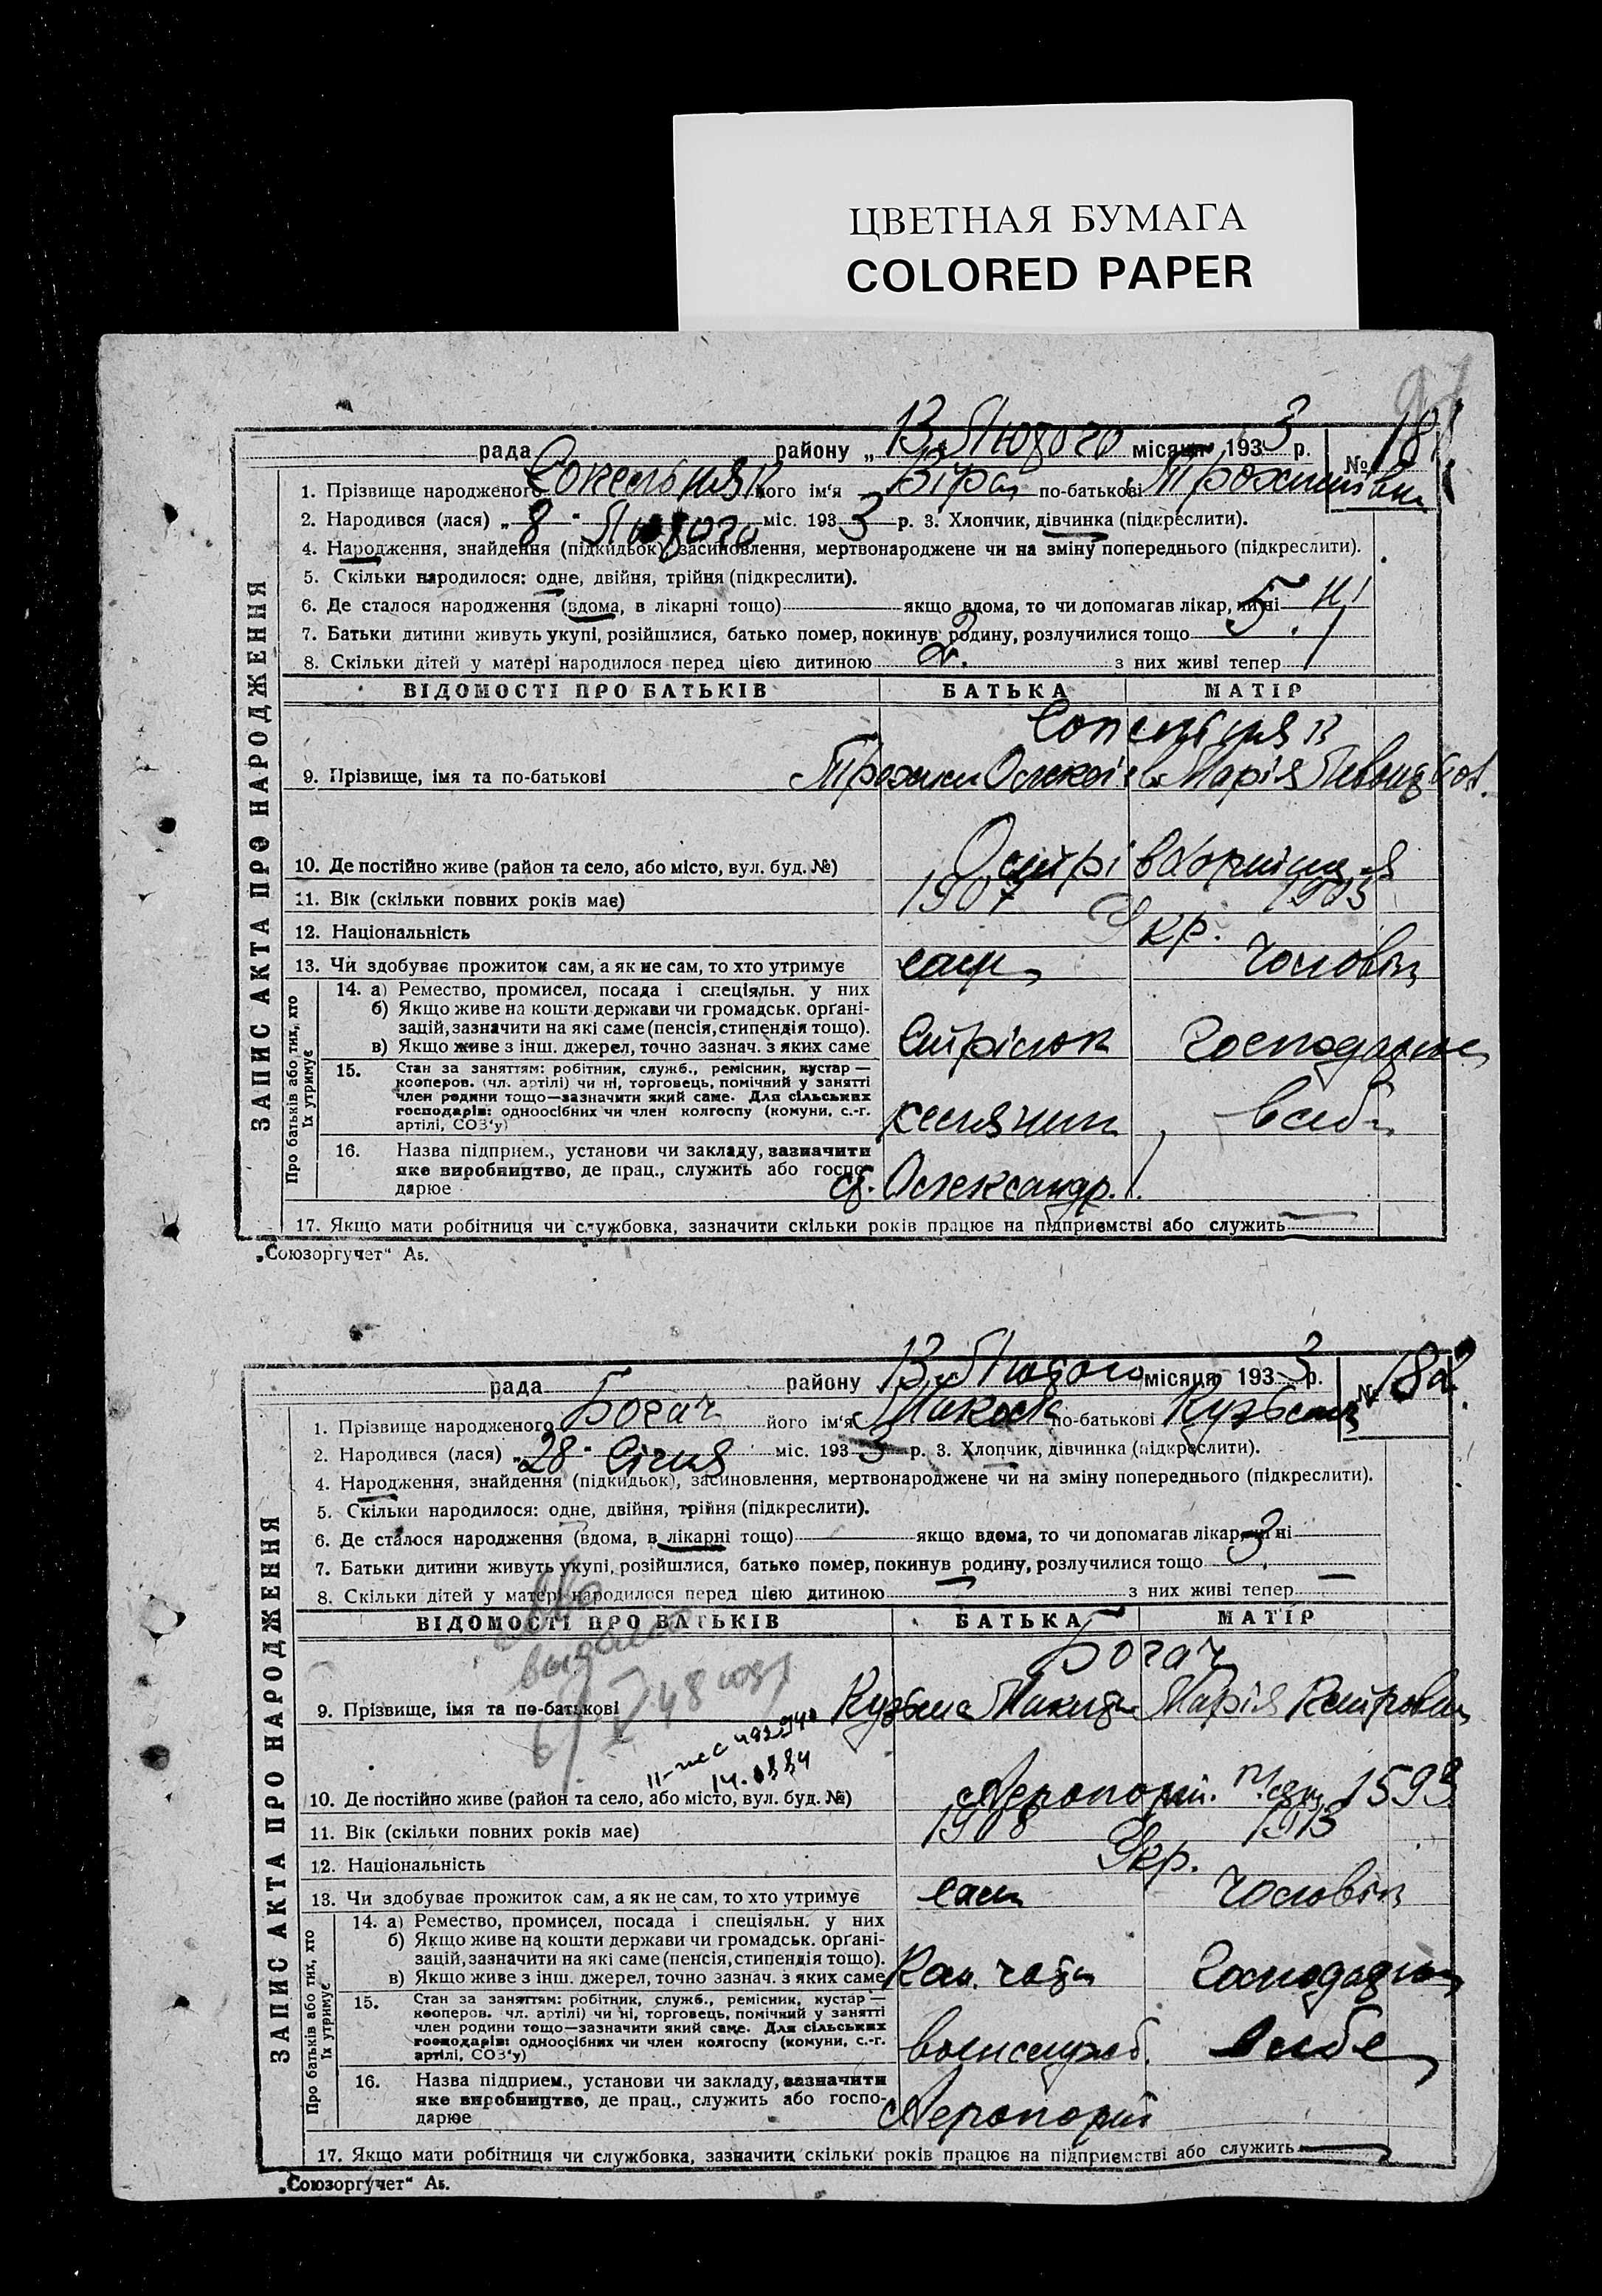 ЦВЕТНАЯ БУМАГА
COLORED PAPER
97
рада району „13„ Лютого місяця 1933 р. № 181
1. Прізвище народженого його ім'я Віра по-батькові Трохимівна
2. Народився (лася) „8" Лютого міс. 1933 р. 3. Хлопчик, дівчинка (підкреслити).
4. Народження, знайдення (підкидьок), засиновлення, мертвонароджене чи на зміну попереднього (підкреслити).
5. Скільки народилося: одне, двійня, трійня (підкреслити).
6. Де сталося народження (вдома, в лікарні тощо) якщо вдома, то чи допомагав лікар, чи ні
7. Батьки дитини живуть укупі, розійшлися, батько помер, покинув родину, розлучилися тощо
8. Скільки дітей у матері народилося перед цією дитиною 2. з них живі тепер
ЗАПИС АКТА ПРО НАРОДЖЕННЯ
ВІДОМОСТІ ПРО БАТЬКІВ БАТЬКА МАТІР
9. Прізвище, імя та по-батькові Марія
10. Де постійно живе (район та село, або місто, вул. буд. №)
11. Вік (скільки повних років має) 1907 1905
12. Національність Укр.
13. Чи здобуває прожиток сам, а як не сам, то хто утримує сам чоловік
Про батьків або тих, хто їх утримує
14. а) Ремество, промисел, посада і спеціяльн. у них
б) Якщо живе на кошти держави чи громадськ. організацій, зазначити на які саме (пенсія, стипендія тощо).
в) Якщо живе з інш. джерел, точно зазнач. з яких саме Стрілок
15. Стан за заняттям: робітник, служб., ремісник, кустар —
кооперов. (чл. артілі) чи ні, торговець, помічний у занятті
член родини тощо—зазначити який саме. Для сільських
господарів: одноосібних чи член колгоспу (комуни, с.-г.
артілі, СОЗ'у)
16. Назва підприєм., установи чи закладу, зазначити
яке виробництво, де прац., служить або госпо-
дарює ст. Олександр.
17. Якщо мати робітниця чи службовка, зазначити скільки років працює на підприємстві або служить
„Союзоргучет" А5.
рада району „13„ Лютого місяця 1933 р. № 182
1. Прізвище народженого Богач його ім'я по-батькові
2. Народився (лася) „28" Січня міс. 1933 р. 3. Хлопчик, дівчинка (підкреслити).
4. Народження, знайдення (підкидьок), засиновлення, мертвонароджене чи на зміну попереднього (підкреслити).
5. Скільки народилося: одне, двійня, трійня (підкреслити).
6. Де сталося народження (вдома, в лікарні тощо) якщо вдома, то чи допомагав лікар, чи ні
7. Батьки дитини живуть укупі, розійшлися, батько помер, покинув родину, розлучилися тощо 3.
8. Скільки дітей у матері народилося перед цією дитиною — з них живі тепер —
ЗАПИС АКТА ПРО НАРОДЖЕННЯ
ВІДОМОСТІ ПРО БАТЬКІВ БАТЬКА МАТІР
Богач
9. Прізвище, імя та по-батькові Кузьма Марія
10. Де постійно живе (район та село, або місто, вул. буд. №) Аеропорт.
11. Вік (скільки повних років має) 1908 1913
12. Національність Укр.
13. Чи здобуває прожиток сам, а як не сам, то хто утримує сам чоловік
Про батьків або тих, хто їх утримує
14. а) Ремество, промисел, посада і спеціяльн. у них
б) Якщо живе на кошти держави чи громадськ. організацій, зазначити на які саме (пенсія, стипендія тощо).
в) Якщо живе з інш. джерел, точно зазнач. з яких саме
15. Стан за заняттям: робітник, служб., ремісник, кустар —
кооперов. чл. артілі) чи ні, торговець, помічний у занятті
член родини тощо—зазначити який саме. Для сільських
господарів: одноосібних чи член колгоспу (комуни, с.-г.
артілі, СОЗ'у)
16. Назва підприєм., установи чи закладу, зазначити
яке виробництво, де прац., служить або госпо-
дарює Аеропорт
17. Якщо мати робітниця чи службовка, зазначити скільки років працює на підприємстві або служить —
„Союзоргучет" А5.